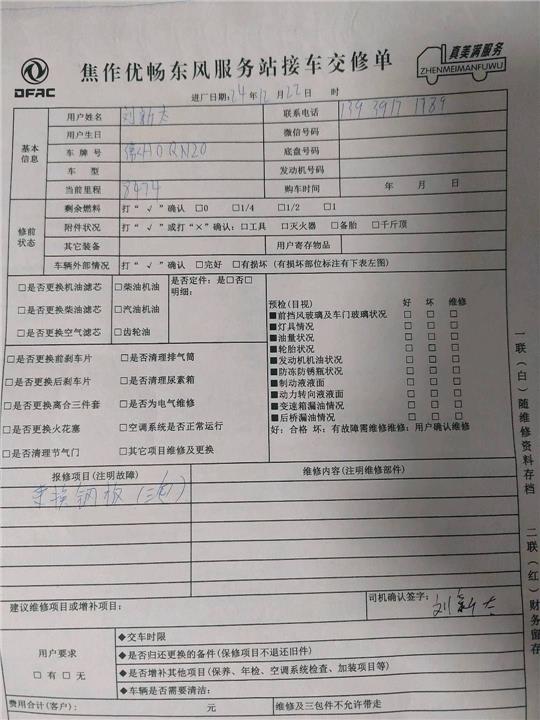 DFAC
焦作优畅东风服务站接车交修单
真美满服务
ZHENMEIMANFUWU
进厂日期: 24 年 12 月 22 日 时
基本信息
用户姓名 刘新 联系电话
用户生日 微信号码
车牌号 底盘号码
车型 发动机号码
当前里程 8474 购车时间 年 月 日
修前状态
剩余燃料 打“√”确认 □0 □1/4 □1/2 □1
附件状况 打“√”或打“×”确认: □工具 □灭火器 □备胎 □千斤顶
其它装备 用户寄存物品
车辆外部情况 打“√”确认 □完好 □有损坏 (有损坏部位标注有下表左图)
□是否更换机油滤芯 □柴油机油 是否定件: 是□否□
明细:
□是否更换柴油滤芯 □汽油机油
□是否更换空气滤芯 □齿轮油
□是否更换前刹车片 □是否清理排气筒
□是否更换后刹车片 □是否清理尿素箱
□是否更换离合三件套 □是否为电气维修
□是否更换火花塞 □空调系统是否正常运行
□是否清理节气门 □其它项目维修及更换
预检(目视) 好 坏 维修
■前挡风玻璃及车门玻璃状况 □ □ □
■灯具情况 □ □ □
■油量状况 □ □ □
■轮胎状况 □ □ □
■发动机机油状况 □ □ □
■防冻防锈瓶状况 □ □ □
■制动液液面 □ □ □
■动力转向液液面 □ □ □
■变速箱漏油情况 □ □ □
■后桥漏油情况 □ □ □
好: 合格 坏: 有故障需维修维修: 用户确认维修
报修项目(注明故障) 维修内容(注明维修部件)
更换钢板(三包)
建议维修项目或增补项目:
司机确认签字: 刘新
用户要求
□有 □无
◆交车时限
◆是否归还更换的备件(保修项目不退还旧件)
◆是否增补其他项目(保养、年检、空调系统检查、加装项目等)
◆车辆是否需要清洁:
费用合计(客户): 元 维修及三包件不允许带走
一联(白)随维修资料存档
二联(红)财务留存